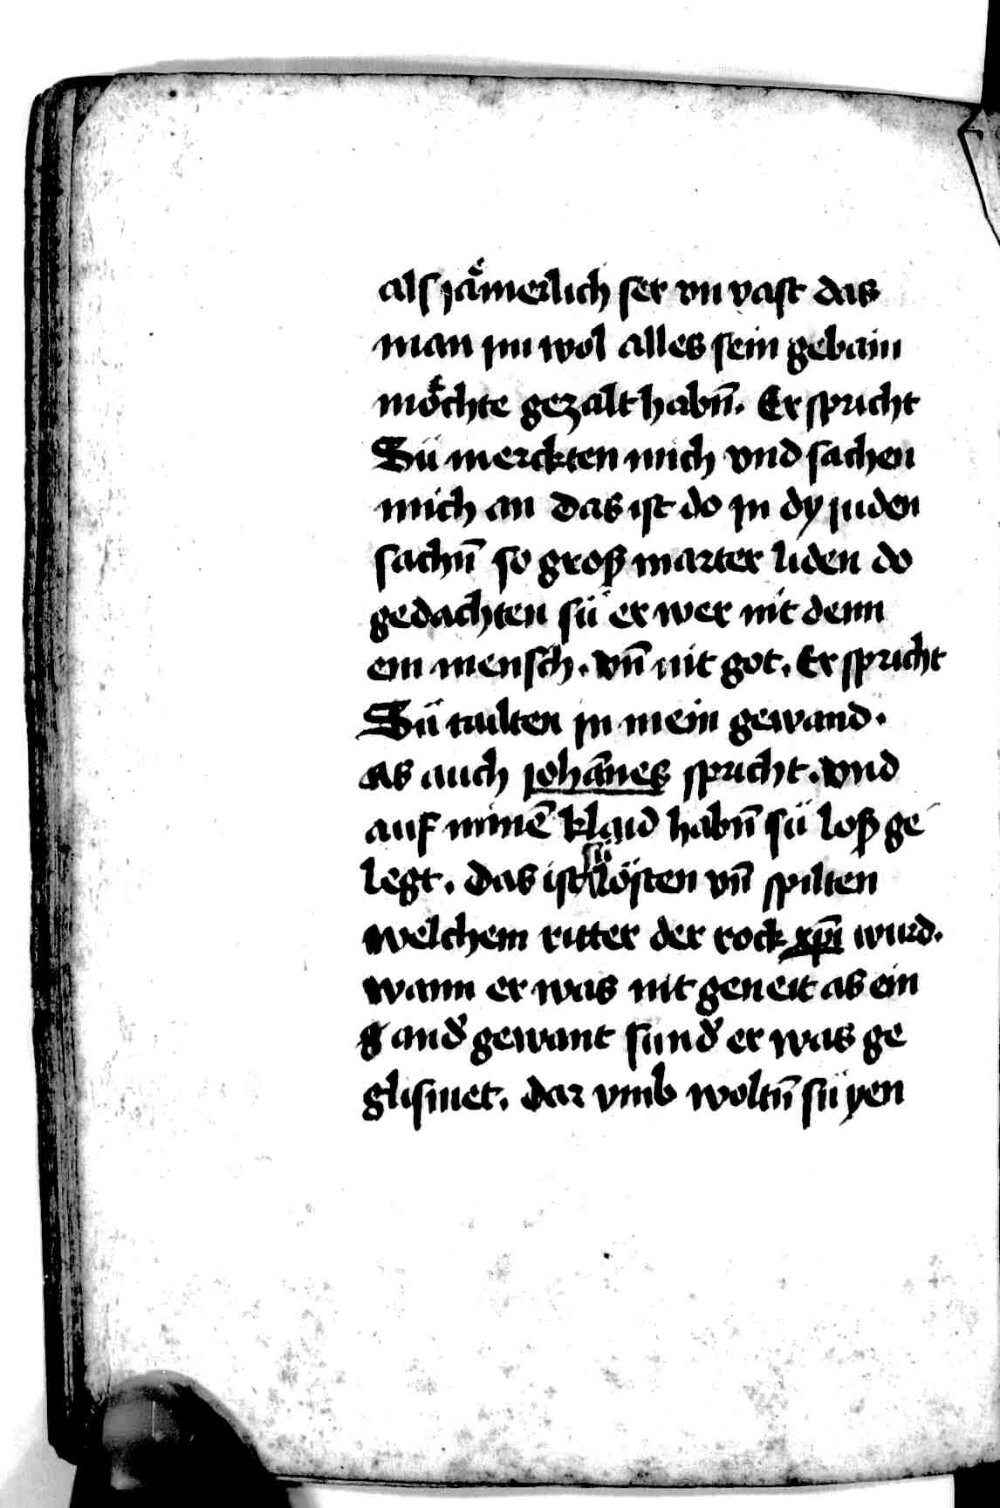 als jämerlich ser vn vast das
man jm wol alles sein gebain
möchte gezalt habn̄. Er spricht
Sü merckten mich vnd sachen
mich an das ist do jn dy juden
sachn̄ so groß marter liden do
gedachten sü er wer nit denn
ein mensch. vn̄ nit got. Er spricht
Sü tailten jn mein gewand.
as auch johānes spricht. vnd
auf minē klaid habn̄ sü loß ge
legt. das ist sü lösten vn̄ spilten
welchem ritter der rock xp̄i wurd.
wann er was nit geneit as ein
and̕ gewant sund̕ er was ge
glismet. dar vmb woltn̄ sü yen